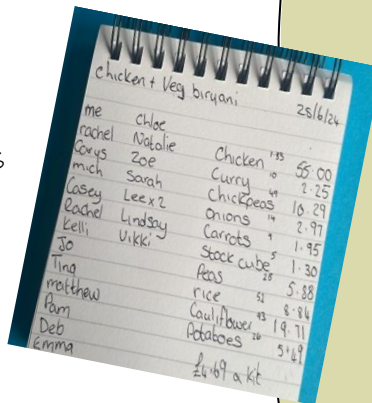 chicken + Veg biryani
25/6/24
me
rachel
Carys
mich
Casey
Rachel
Kelli
Jo
Tina
matthew
Pam
Deb
Emma
Chloe
Natalie
Zoe
Sarah
Lee x 2
Lindsay
Vikki
Chicken 55.00
Curry 2.25
Chickpeas 10.29
onions 2.97
Carrots 1.95
Stock cube 1.30
Peas 5.88
rice 8.84
Cauliflower 19.71
Potatoes 5.49
£4.69 a kit